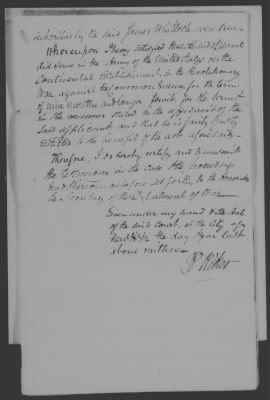 subscribed by the said James Whitlock, were true
Whereupon I being satisfied that the said James
did serve in the Army of the United States on the
Continental establishment, in the Revolutionary
War against the Common Enemy for the term
of nine months and longer, to wit, for the term &
in the manner stated in the affidavit of the
said applicant and that he is justly
entitled to the benefit of the act aforesaid.
Therefore, I do hereby certify and transmit
the testimony in the case & the proceedings
had thereon as before set forth, to the Honorable
the Secretary of the Department of War.
Given under my hand & the seal
of the said court, in the city of
New York the day & year last
above written
R Riker